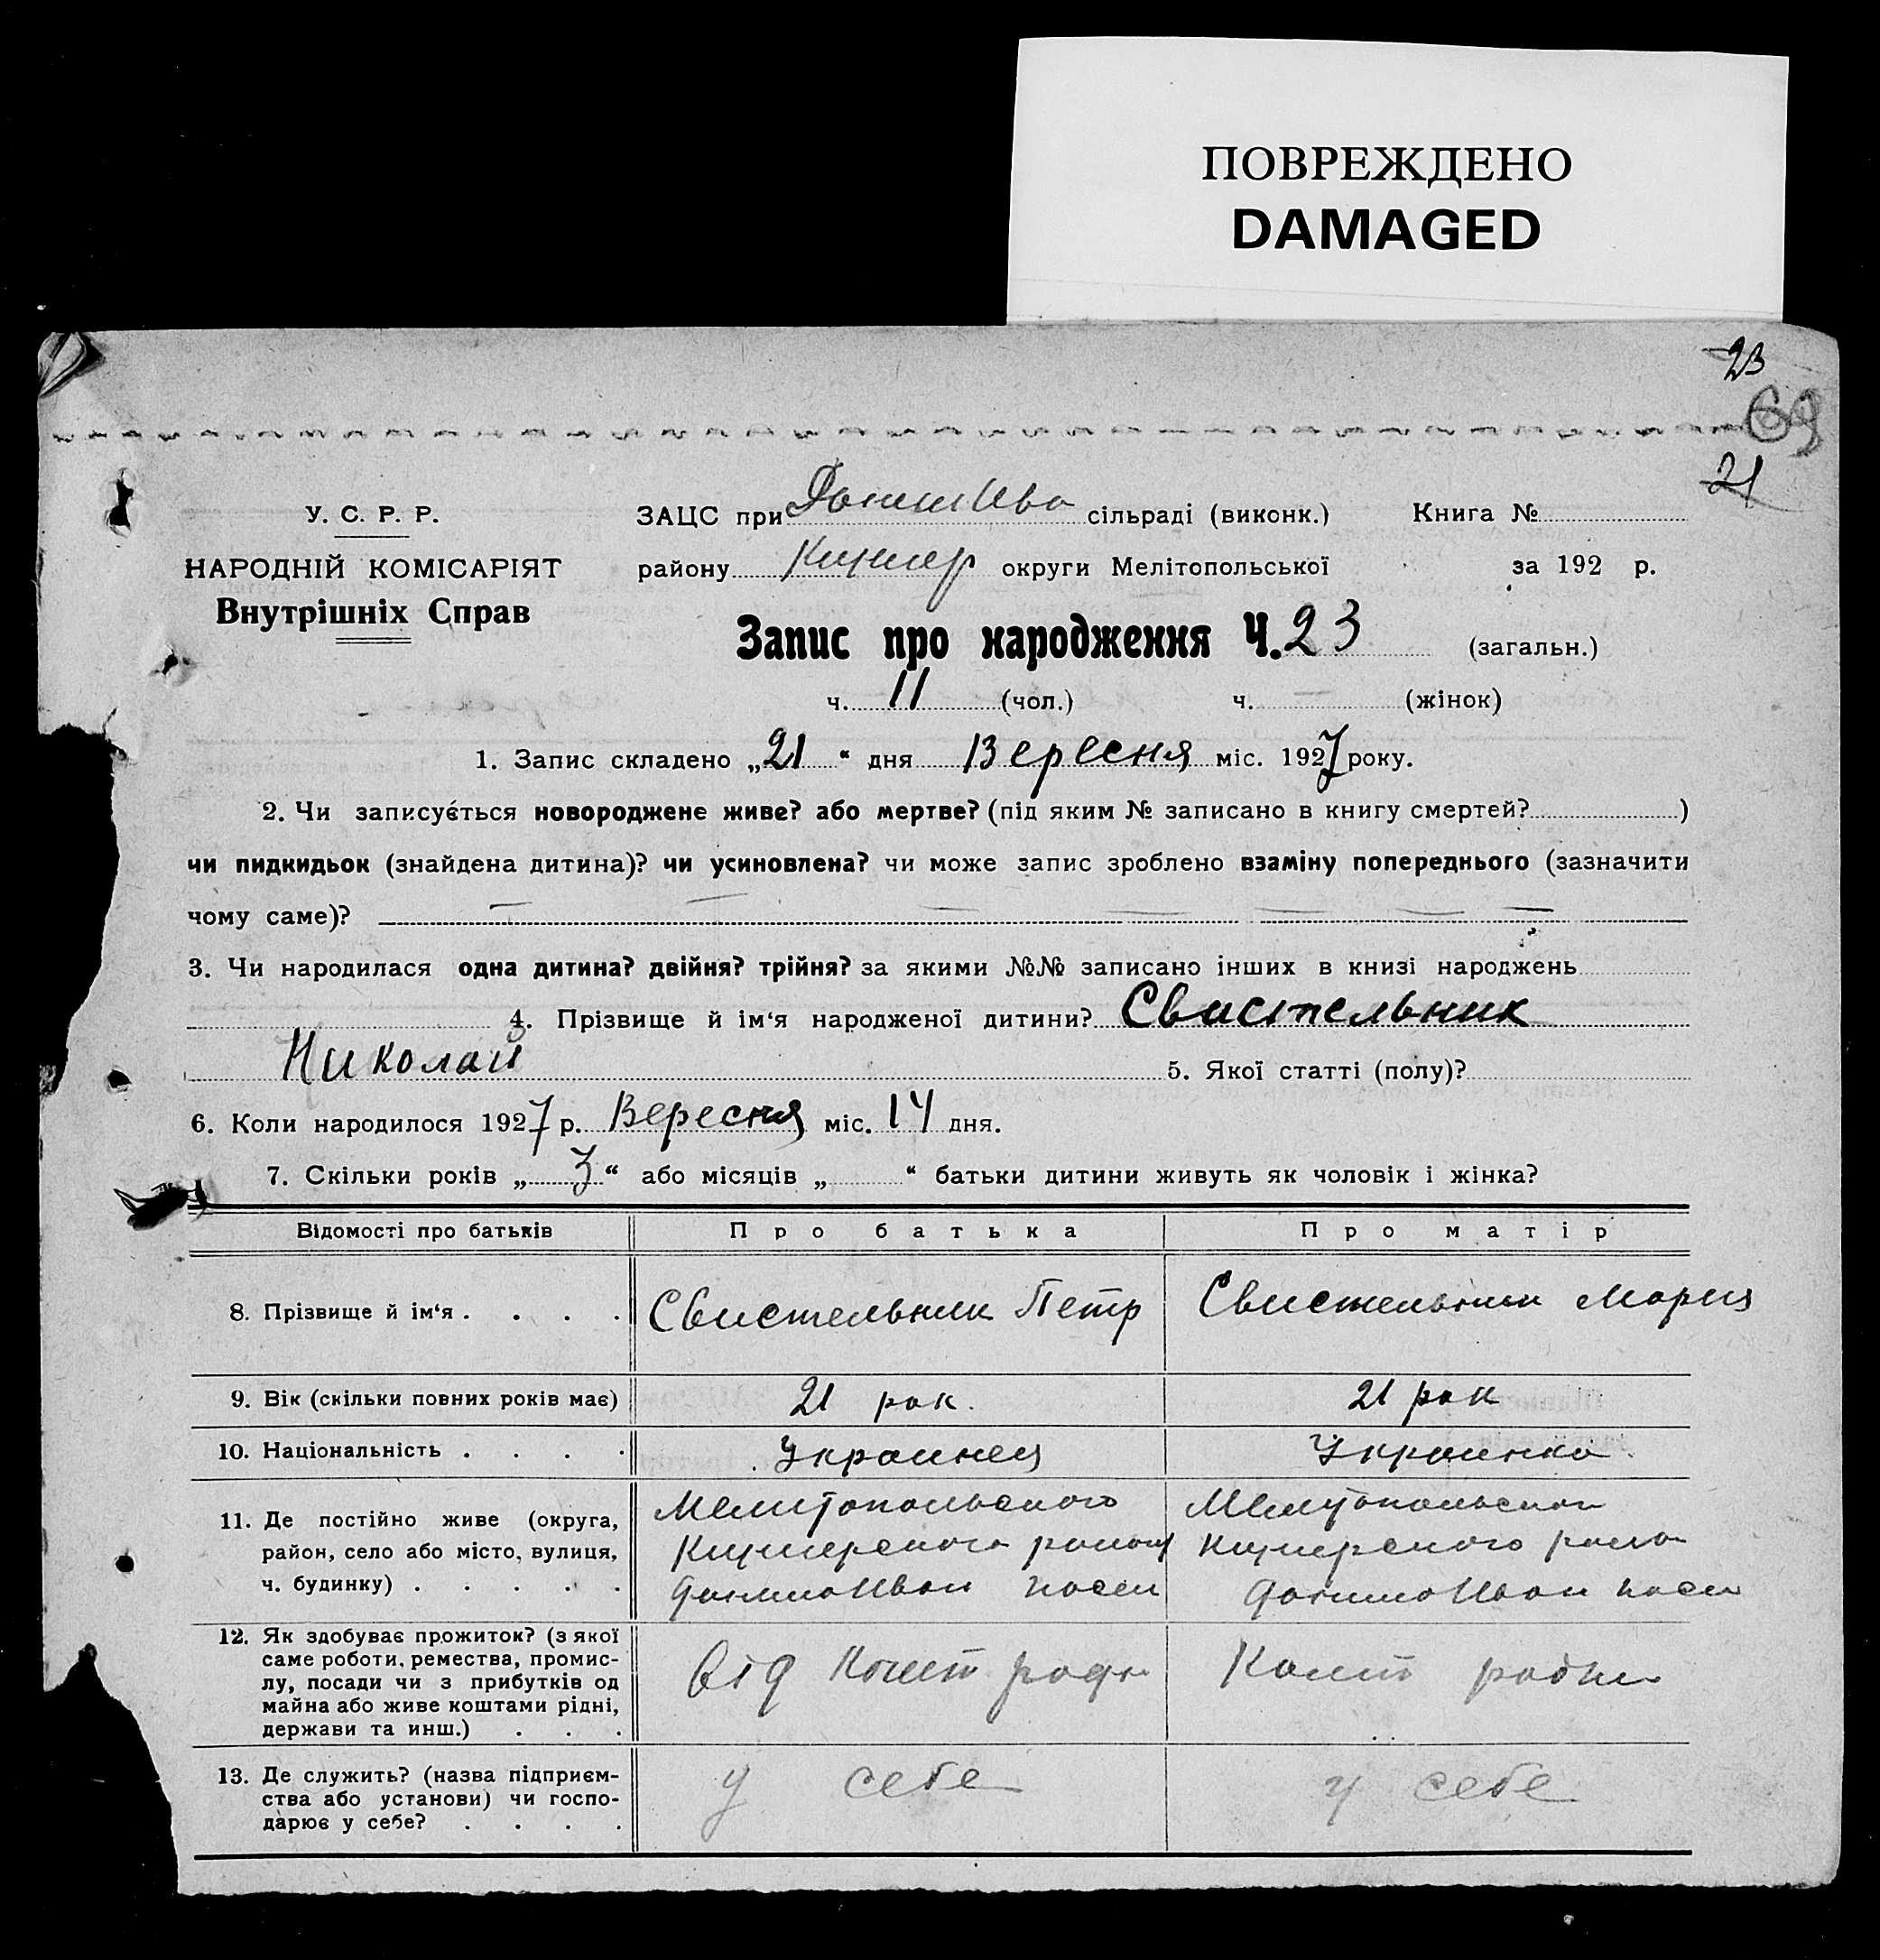 ПОВРЕЖДЕНО
DAMAGED
23
69
21
У. С. Р. Р.
НАРОДНІЙ КОМІСАРІЯТ
Внутрішніх Справ
ЗАЦС при сільраді (виконк.) Книга №
району округи Мелітопольської за 192 р.
Запис про народження Ч. 23 (загальн.)
ч. 11 (чол.) ч. — (жінок)
1. Запис складено „21“ дня Вересня міс. 1927 року.
2. Чи записується новороджене живе? або мертве? (під яким № записано в книгу смертей? )
чи пидкидьок (знайдена дитина)? чи усиновлена? чи може запис зроблено взаміну попереднього (зазначити
чому саме)?
3. Чи народилася одна дитина? двійня? трійня? за якими №№ записано інших в книзі народжень
4. Прізвище й ім‘я народженої дитини? Свистельник
Николай 5. Якої статті (полу)?
6. Коли народилося 1927 р. Вересня міс. 14 дня.
7. Скільки років „3“ або місяців „ “ батьки дитини живуть як чоловік і жінка?
Відомості про батьків Про батька Про матір
8. Прізвище й ім‘я . . . . Свистельник Петр Свистельник Мария
9. Вік (скільки повних років має) 21 рок. 21 рок
10. Національність . . . . Украинец Украинка
11. Де постійно живе (округа,
район, село або місто, вулиця,
ч. будинку) . . . . .
Мелитопольского
12. Як здобуває прожиток? (з якої
саме роботи, ремества, промис-
лу, посади чи з прибутків од
майна або живе коштами рідні,
держави та инш.) . . .
Від
13. Де служить? (назва підприєм-
ства або установи) чи госпо-
дарює у себе? . . . .
у себе у себе